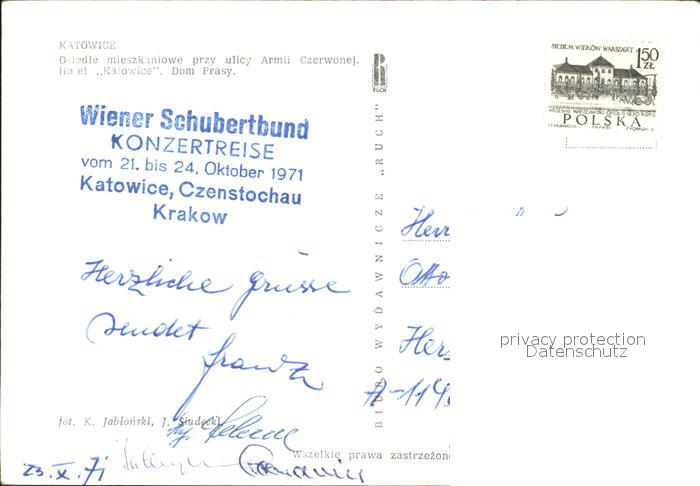 KATOWICE
Osiedle mieszkaniowe przy ulicy Armii Czerwonej.
Hotel „Katowice". Dom Prasy.
Wiener Schubertbund
KONZERTREISE
vom 21. bis 24. Oktober 1971
Katowice, Czenstochau
Krakow
Herzliche Grüsse
sendet
Franz
fot. K. Jabłoński, J. Siudecki
23.X.71
Wszelkie prawa zastrzeżone
RUCH
BIURO WYDAWNICZE „RUCH"
SIEDEM WIEKÓW WARSZAWY
1,50
ZŁ
POLSKA
Herr
Otto
Her
A-114
privacy protection
Datenschutz